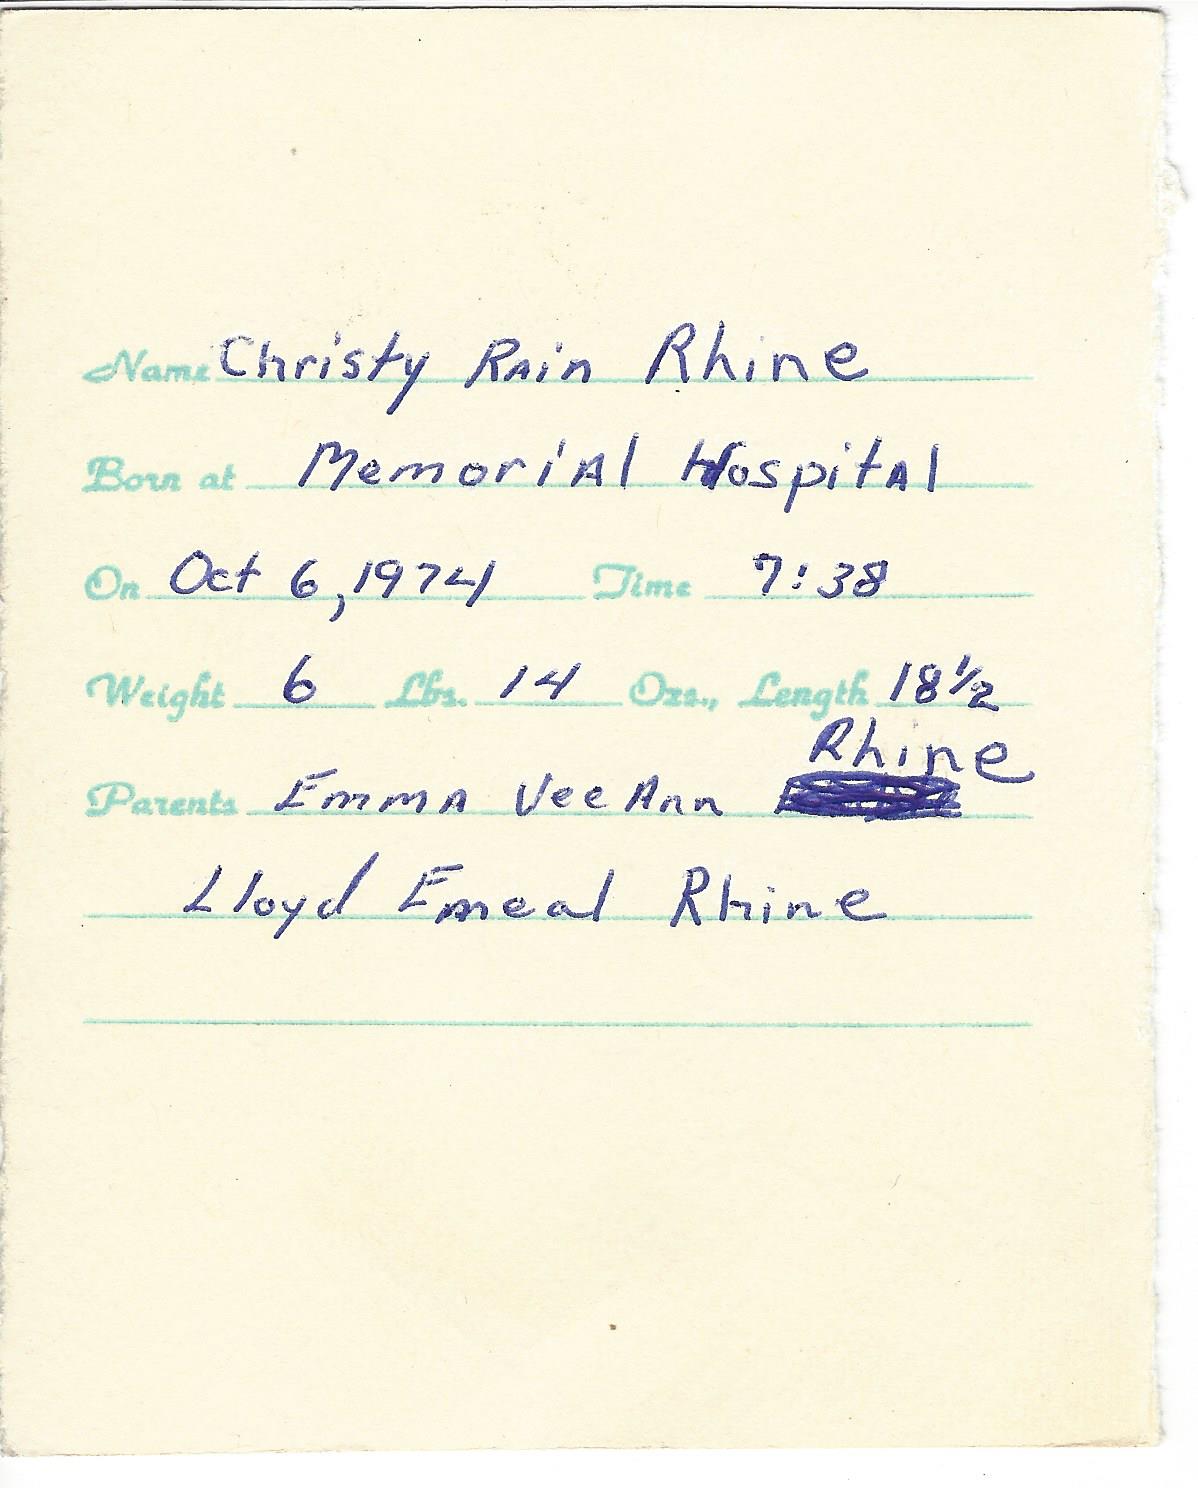 Name Christy Rain Rhine
Born at Memorial Hospital
On Oct 6, 1974 Time 7:38
Weight 6 Lbs. 14 Ozs., Length 18 1/2
Rhine
Parents Emma VeeAnn
Lloyd Emeal Rhine